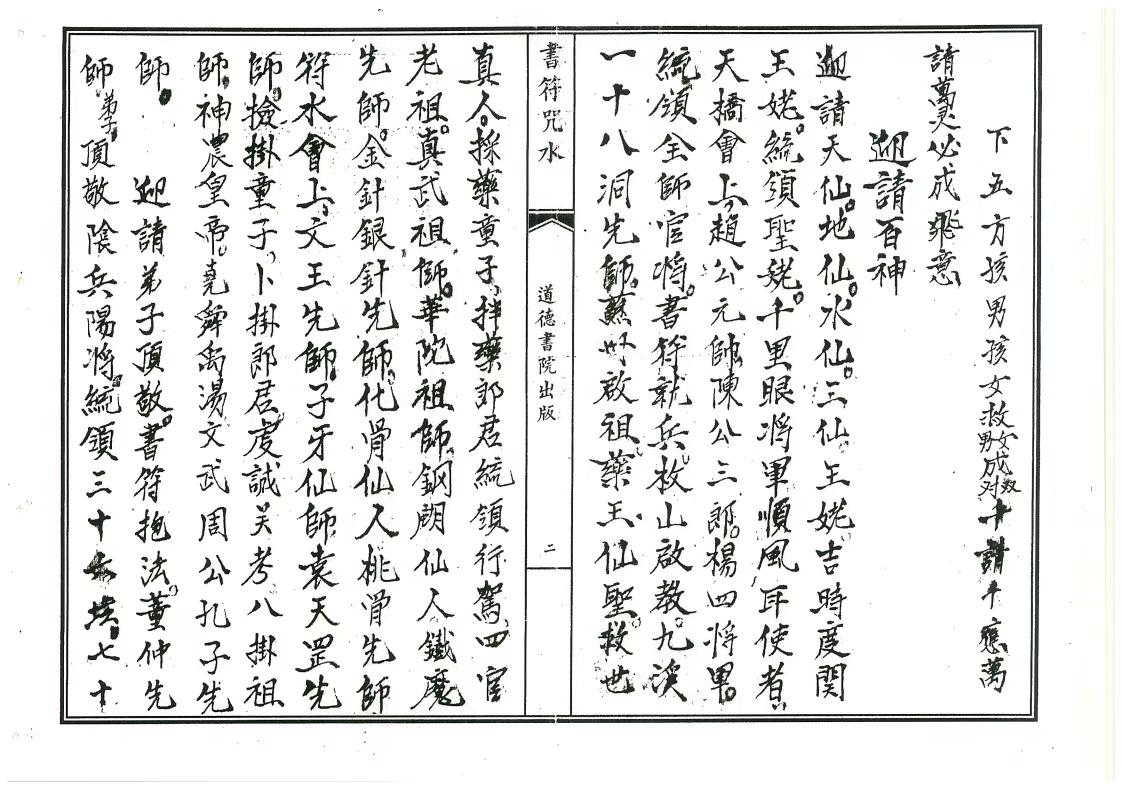 下五方孩男孩女救男女成双对千請千應萬
請萬灵必成飛意
迎請百神
迎請天仙。地仙。水仙。三仙王姥。吉時度関
王姥。統領聖姥。千里眼将軍順風耳使者。
天橋會上，趙公元帥陳公三郎。楊四将軍。
統領全師官将。書符就兵。救山啟教。九溪
一十八洞先師。啟祖藥王。仙聖。救世
書符咒水
道德書院出版
二
真人。採藥童子，拌藥郎君統領行駕，四官
老祖。真武祖師。華陀祖師。銅刷仙人鐵魔
先師。金針銀針先師。化骨仙人桃骨先師
符水會上，文王先師。子牙仙師。袁天罡先
師。撿掛童子，卜掛郎君虔誠关考八掛祖
師。神農皇帝。堯舜禹湯文武周公孔子先
師。迎請弟子頂敬。書符抱法。董仲先
師。弟子。頂敬陰兵陽将。統領三十六㙮。七十